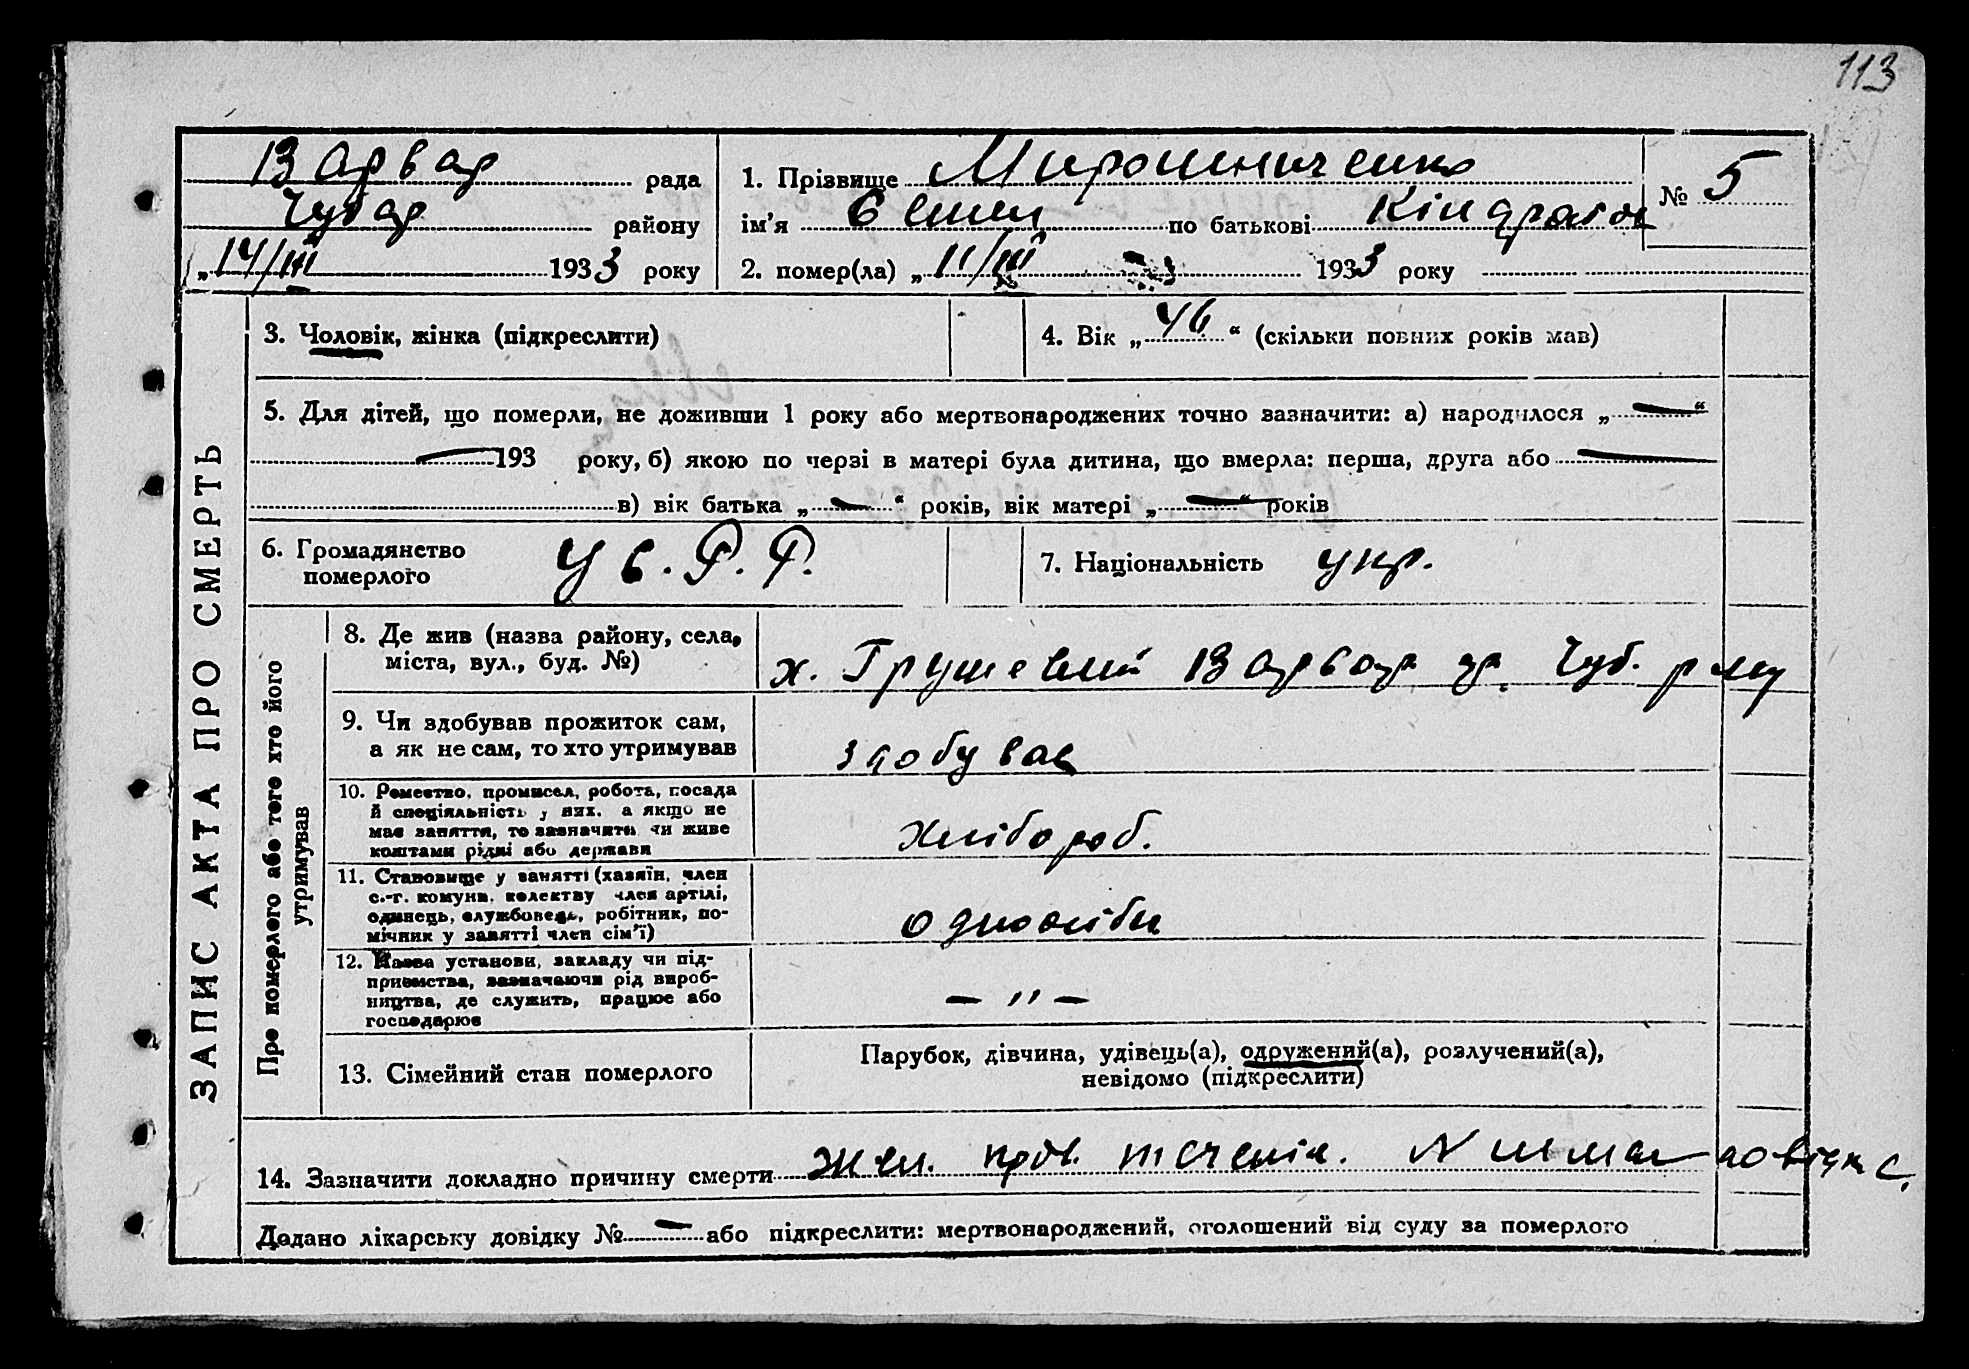 113
Варвар рада
Чубар району
„14/III 1933 року
1. Прізвище Мирошниченко
ім'я Семен по батькові Кіндратов
№ 5
2. помер(ла) „11/III 1933 року
ЗАПИС АКТА ПРО СМЕРТЬ
3. Чоловік, жінка (підкреслити)
4. Вік „46“ (скільки повних років мав)
5. Для дітей, що померли, не доживши 1 року або мертвонароджених точно зазначити: а) народилося „—“
— 193 року, б) якою по черзі в матері була дитина, що вмерла: перша, друга або —
в) вік батька „—“ років, вік матері „—“ років
6. Громадянство
померлого
У С. Р. Р.
7. Національність укр.
Про померлого або того хто його
утримував
8. Де жив (назва району, села,
міста, вул., буд. №)
х. Грушевий Варвар Чуб. р-ну
9. Чи здобував прожиток сам,
а як не сам, то хто утримував
здобував
10. Ремество, промисел, робота, посада
й спеціяльність у них, а якщо не
має заняття, то зазначити чи живе
коштами рідні або держави
хлібороб.
11. Становище у занятті (хазяїн, член
с.-г. комуни, колективу член артілі,
одинець, службовець, робітник, по-
мічник у занятті член сім'ї)
одноосібн
12. Назва установи, закладу чи під-
приємства, зазначаючи рід вироб-
ництва, де служить, працює або
господарює
— " —
13. Сімейний стан померлого
Парубок, дівчина, удівець(а), одружений(а), розлучений(а),
невідомо (підкреслити)
14. Зазначити докладно причину смерти
Додано лікарську довідку №— або підкреслити: мертвонароджений, оголошений від суду за померлого